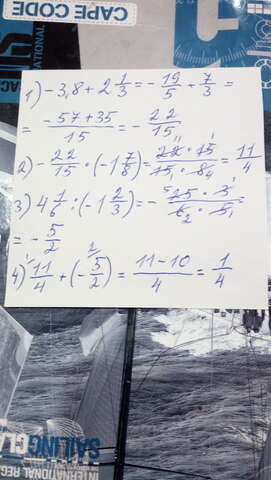 CAPE CODE
NATIONAL
1) -3,8 + 2 1/3 = - 19/5 + 7/3 =
= (-57 + 35)/15 = - 22/15
2) - 22/15 · (-1 7/8) = (22 · 15)/(15 · 8) = 11/4
3) 4 1/6 : (-1 2/3) = - (25 · 3)/(6 · 5)
= - 5/2
4) 11/4 + (- 5/2) = (11 - 10)/4 = 1/4
SAILING CL
INTERNATIONAL REG